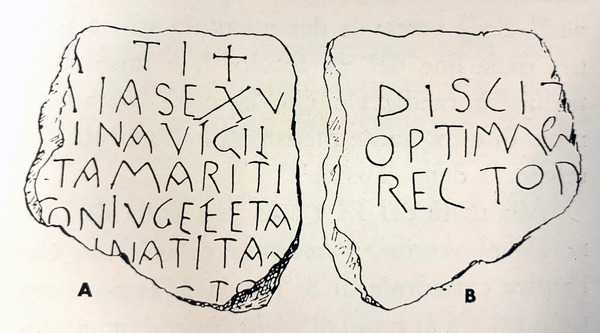 TI +
AIASEXV
INAVIGIL
TAMARITI
ONIVGEEETA
NATITA
TO
A
DISCI
OPTIMVM
RECTOR
B